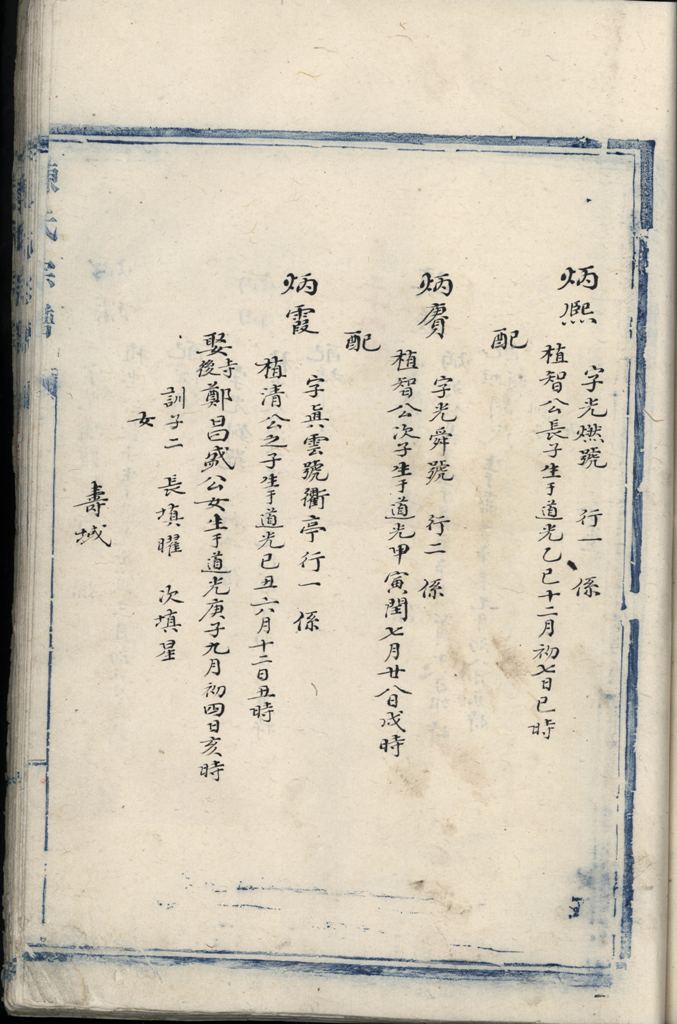 炳熙
字光燃號 行一 係
植智公長子生于道光乙巳十二月初七日巳時
配
炳賡
字光舜號 行二 係
植智公次子生于道光甲寅閏七月廿八日戌時
配
炳霞
字眞雲號衢亭行一 係
植清公之子生于道光己丑六月十二日丑時
娶寺後鄭曰盛公女生于道光庚子九月初四日亥時
訓子二 長填曜 次填星
女
壽城
陳氏宗譜